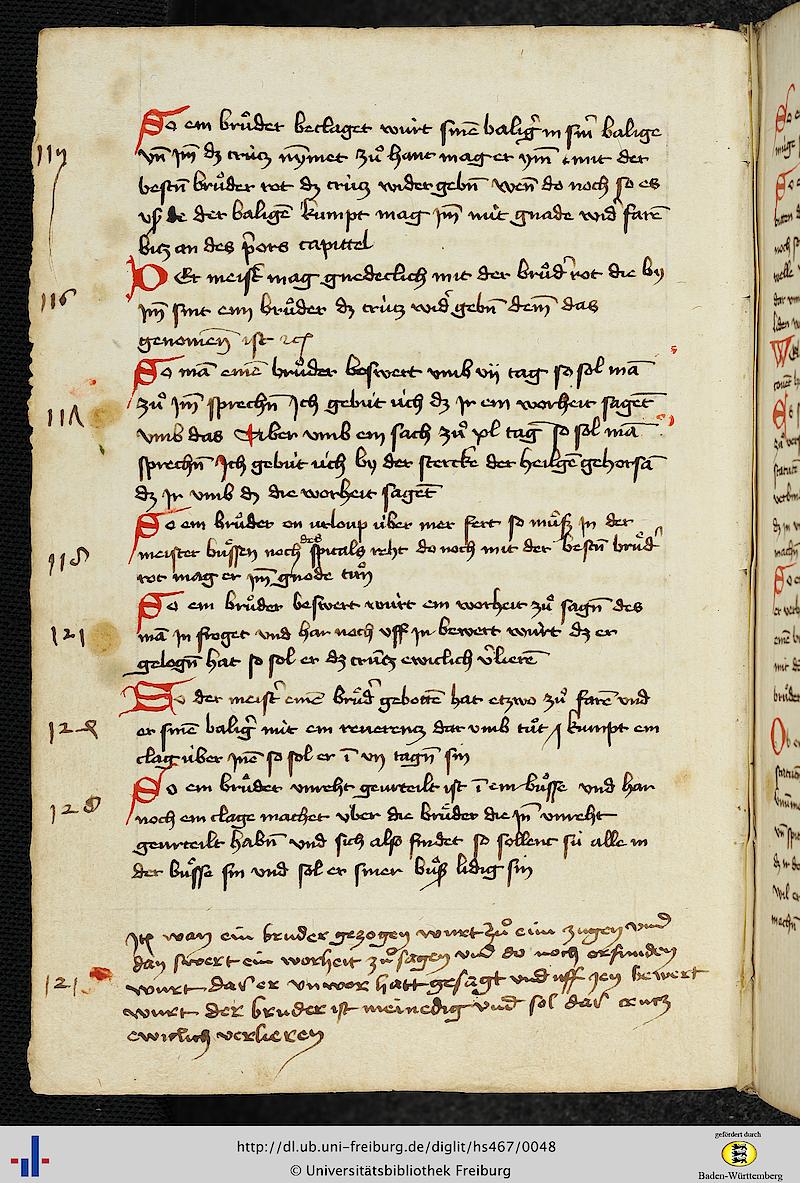 So ein brůder beclaget würt sinē baligr̄ in sinr̄ balige
117
vn̄ jm̄ dz crütz nȳmet zů hant mag er ym̄ mit der
bestn̄ brůder rot dz crütz wider gebn̄ wen̄ do noch so es
vß der baligē kumpt mag jm̄ nüt gnade wid' farē
bitz an des p'ors capittel
Der meist' mag gnedeclich mit der brůd' rot die by
116
jm̄ sint eim brůder dz crütz wid' gebn̄ dem̄ das
genomen̄ ist
So mā einē brůder beswert vmb vij tag so sol mā
zů jm̄ sprechn̄ Ich gebüt üch dz jr ein worheit sagēt
vmb das Aber vmb ein sach zů xl tag so sol mā
sprechn̄ Ich gebüt üch by der stercke der heilgē gehorsā
dz jr vmb dz die worheit sagēt
So ein brůder on urloup über mer fert so můß jn der
meister bůssen noch des spitals reht do noch mit der bestn̄ brůd'
118
rot mag er jm̄ gnode tůn
So ein brůder beswert würt ein worheit zů sagn̄ des
121
mā jn froget vnd har noch vff jn bewert würt dz er
gelogn̄ hat so sol er dz crütz ewiclich v'lierē
So der meist' einē brůd' gebottē hat etzwo zů farē vnd
er sinē baligr̄ nüt ein reuerentz dar vmb tůt kumpt ein
clag über jnē so sol er ī vij tagn̄ sin
So ein brůder vnreht geurteilt ist ī ein bůsse vnd har
noch ein clage machet über die brůder die jn̄ vnreht
geurteilt habn̄ vnd sich also findet so sollent sü alle in
der bůsse sin vnd sol er siner bůß lidig sin
Itē wan ein bruder gezogen wurt zů eim zugen vnd
dan swert ein worheit zů sagen vnd do noch erfunden
121
wurt das er vnwor hatt gesagt vnd vff jen bewert
wurt der bruder ist meinedig vnd sol das crucz
ewiclich verlieren
http://dl.ub.uni-freiburg.de/diglit/hs467/0048
© Universitätsbibliothek Freiburg
gefördert durch
Baden-Württemberg